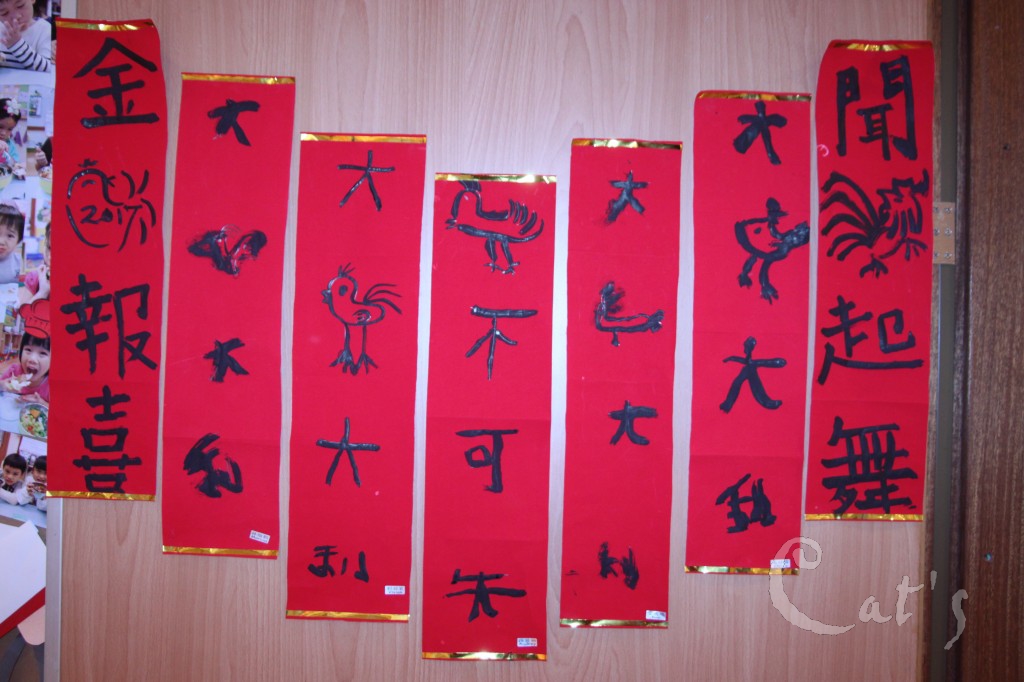 金 2017 報喜
大大利
大大利
不可失
大大利
大大利
聞起舞
Cat's